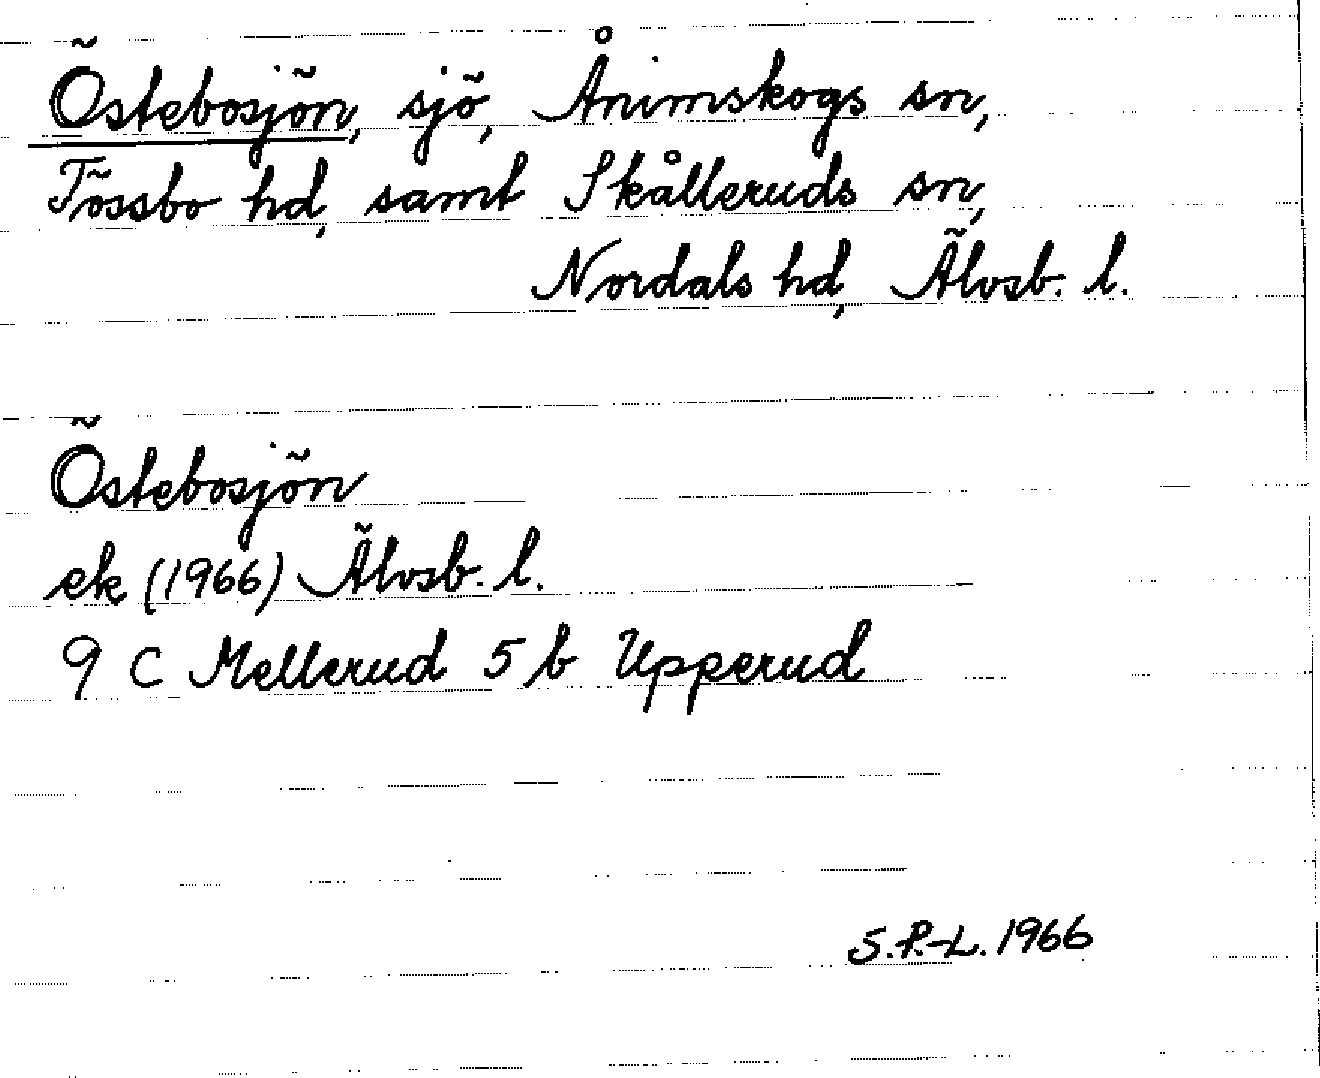 Östebosjön, sjö, Ånimskogs sn,
Tössbo hd, samt Skålleruds sn,
Nordals hd, Älvsb. l.
Östebosjön
ek (1966) Älvsb. l.
9 C Mellerud 5 b Upperud
S.P.-L. 1966